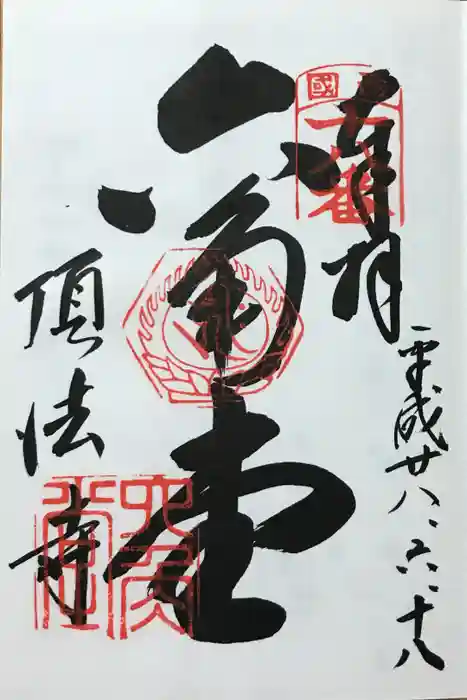 奉拝
平成廿八、六、十八
西國
十八番
六角堂
頂法寺